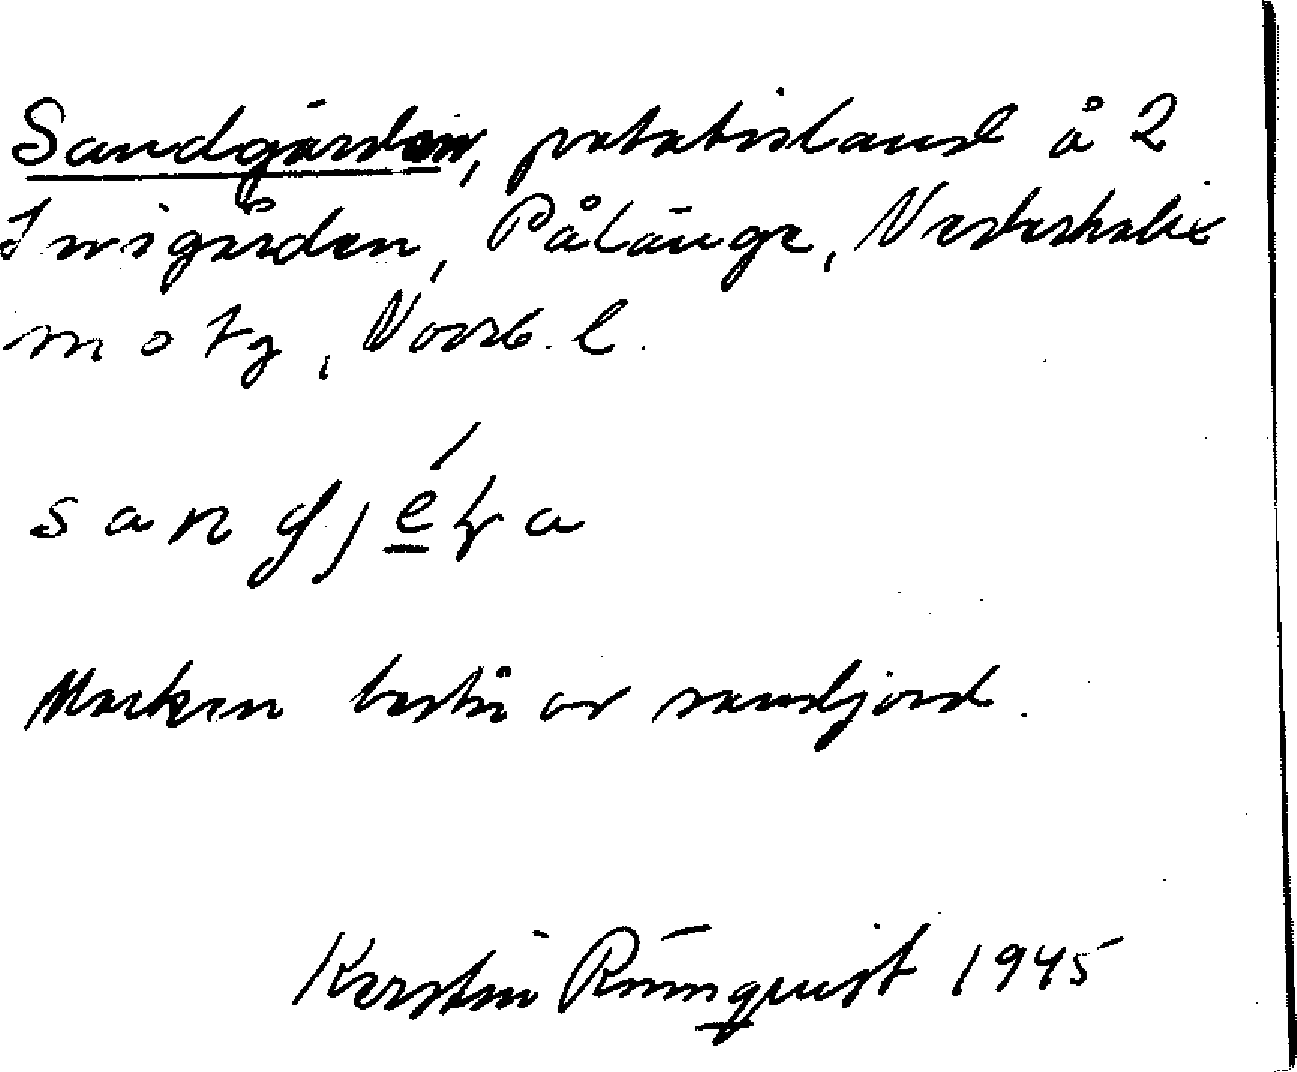 Sandgärden, potatisland å 2
Innigården, Pålänge, Nederkalix
sn o tg, Norrb. l.
Marken består av sandjord.
Kerstin Rönnquist 1945